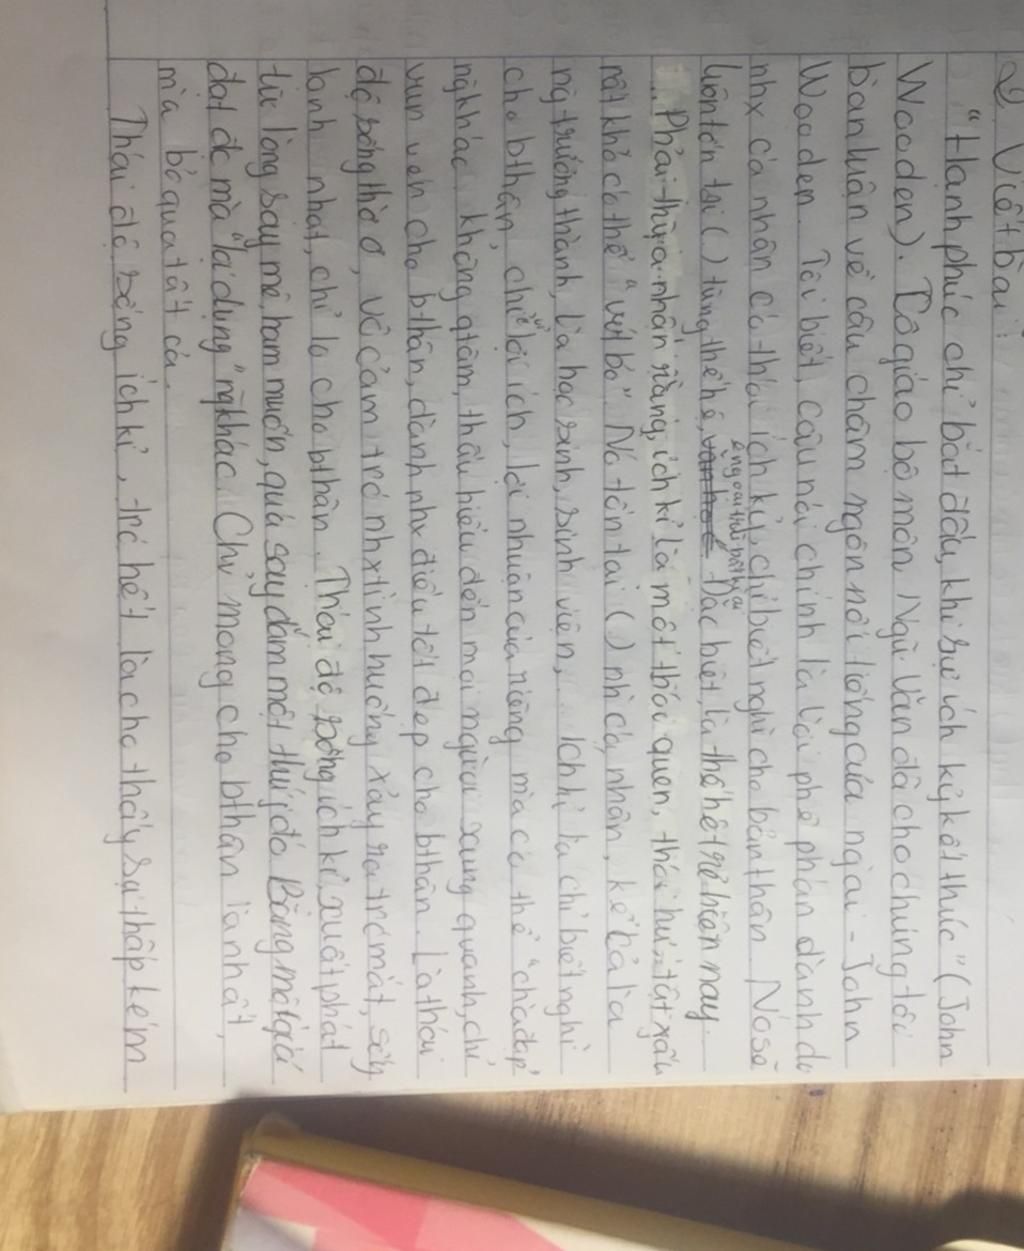 Viết bài:
"Hạnh phúc chỉ bắt đầu, khi sự ích kỷ kết thúc" (John
Wooden). Cô giáo bộ môn Ngữ Văn đã cho chúng tôi
bàn luận về câu châm ngôn nổi tiếng của ngài - John
Wooden. Tôi biết, câu nói chính là lời phê phán dành
như cá nhân có thói ích kỷ, chỉ biết nghĩ cho bản thân. Nó sẽ
luôn tồn tại ( ) từng thế hệ, Đặc biệt, là thế hệ trẻ hiện nay.
Phải thừa nhận rằng, ích kỉ là một thói quen, thói hư, tật xấu
rất khó có thể "vứt bỏ". Nó tồn tại ( ) nhì cá nhân, kể cả là
ng trưởng thành, là học sinh, sinh viên,... Ích kỉ là chỉ biết nghĩ
cho bthân, chỉ vì lợi ích, lợi nhuận của riêng mà có thể "chà đạp"
ng khác, không qtâm, thấu hiểu đến mọi người xung quanh, chỉ
vun vén cho bthân, dành như điều tốt đẹp cho bthân. Là thái
độ sống thờ ơ, vô cảm trc như tình huống xảy ra trc mắt,
lạnh nhạt, chỉ lo cho bthân. Thái độ sống ích kỉ, xuất phát
từ lòng say mê, ham muốn, quá say đắm một thứ j đó. Bằng mọi giá
đạt đc mà "lợi dụng" ng khác. Chỉ mong cho bthân là nhất,
mà bỏ qua tất cả.
Thái độ sống ích kỉ, trc hết là cho thấy sự thấp kém